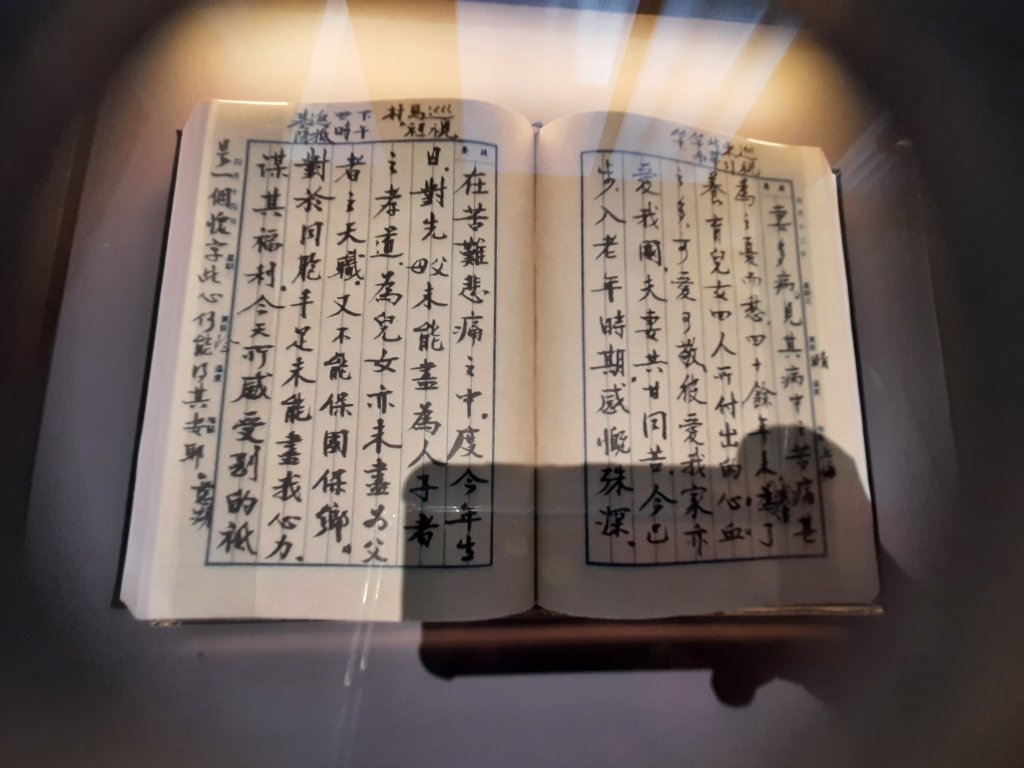 妻多病,見其病中之苦痛甚
為之憂而愁,四十餘年来為了
養育兒女四人所付出的心血
之多,可愛可敬彼愛我家亦
愛我國。夫妻共甘同苦。今已
步入老年時期,感慨殊深。
巡視
在苦難悲痛之中。度今年生
日。對先父母未能盡為人子者
之孝道。為兒女亦未盡為父
者之天職。又不能保國保鄉。
對於同胞手足未能盡我心力。
謀其福利。今天所感受到的祇
是一個愧字此心何能得其安耶
巡視
馬祖
村
下午
四時